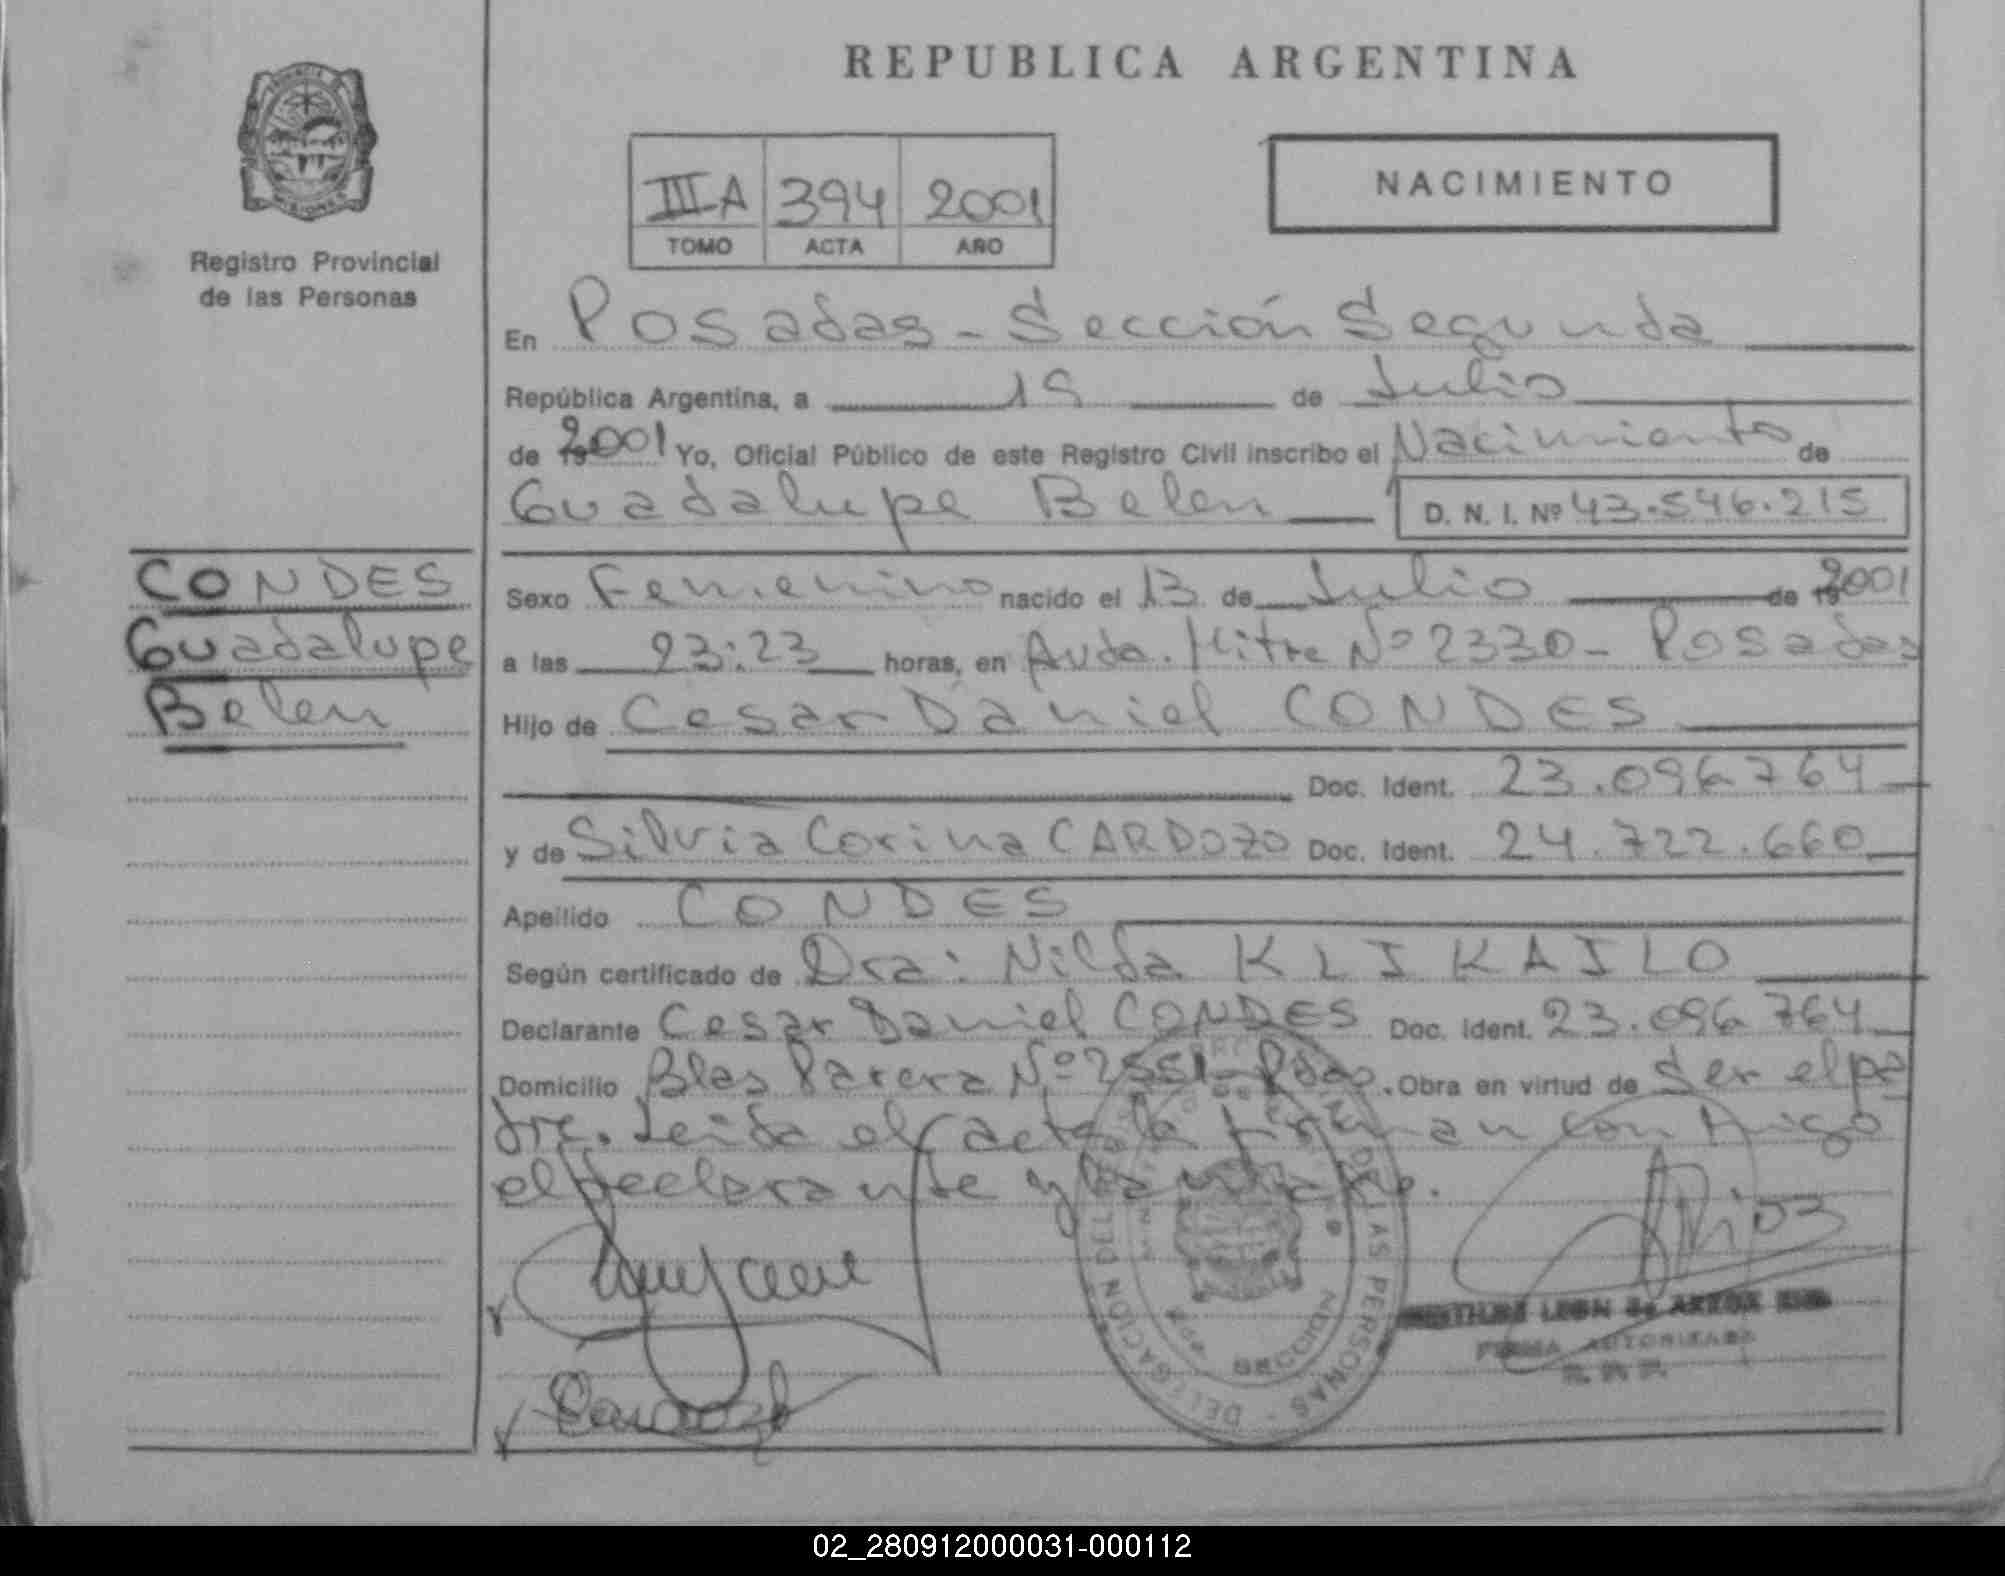 REPUBLICA ARGENTINA
PROVINCIA DE MISIONES
Registro Provincial
de las Personas
III A 394 2001
TOMO ACTA AÑO
NACIMIENTO
En Posadas - Sección Segunda
República Argentina, a 19 de Julio
de 2001 Yo, Oficial Público de este Registro Civil inscribo el Nacimiento de
Guadalupe Belen D. N. I. Nº 43.546.215
CONDES
Guadalupe
Belen
Sexo Femenino nacido el 13 de Julio de 2001
a las 23:23 horas, en Avda. Mitre Nº 2330 - Posadas
Hijo de Cesar Daniel CONDES
Doc. Ident. 23.096764
y de Silvia Corina CARDOZO Doc. Ident. 24.722.660
Apellido CONDES
Según certificado de Dra: Nilda KLIKAILO
Declarante Cesar Daniel CONDES Doc. Ident. 23.096764
Domicilio Blas Parera Nº 2551 - Pdas. Obra en virtud de Ser el pa
dre. Leida el acta la firman con migo
el declarante y la madre.
DELEGACION DEL REGISTRO DE LAS PERSONAS
SECCION 2
Cardozo
ARios
LEON de
FIRMA AUTORIZADA
02_280912000031-000112